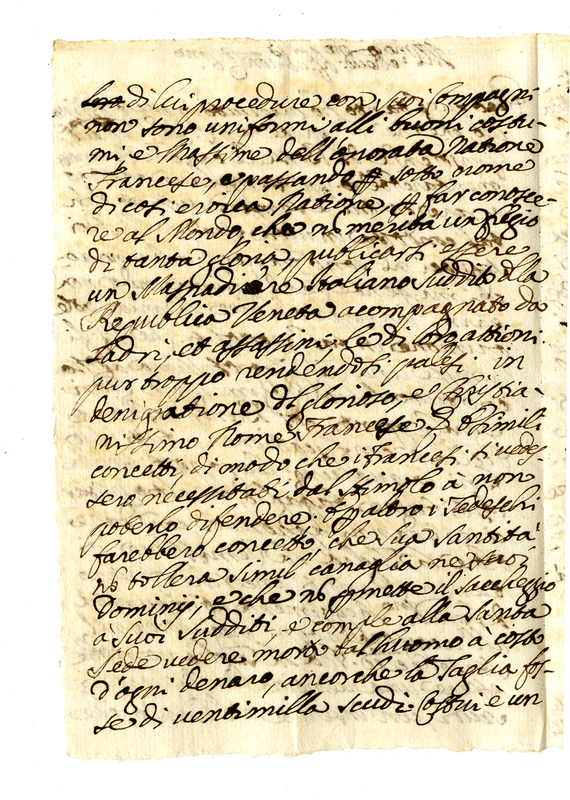 di lui procedure con suoi Compagni
non sono uniformi alli buoni costu-
mi, e Massime dell'onorata Natione
Francese, e passando sotto nome
di così eroica Natione, far conosce-
re al Mondo, che nō merita un fregio
di tanta gloria, publicarsi essere
un Masnadiere Italiano suddito alla
Republica Veneta acompagnato da
Ladri, et assassini, le di loro attioni
pur troppo rendendosi palesi in
denigratione del glorioso, e Christia-
nissimo Nome Francese, e simili
concetti, di modo che i Francesi si vedes-
sero necessitati dal stimolo à non
poterlo difendere. altro i Tedeschi
farebbero concetto, che sua Santità
nō tollera simil canaglia ne suoi
Dominij, e che nō pmette il saccheggio
à suoi sudditi, e comple alla Santa
Sede vedere morto tal huomo à costo
d'ogni denaro, ancorche la Taglia fos-
se di ventimilla scudi. Costui è un